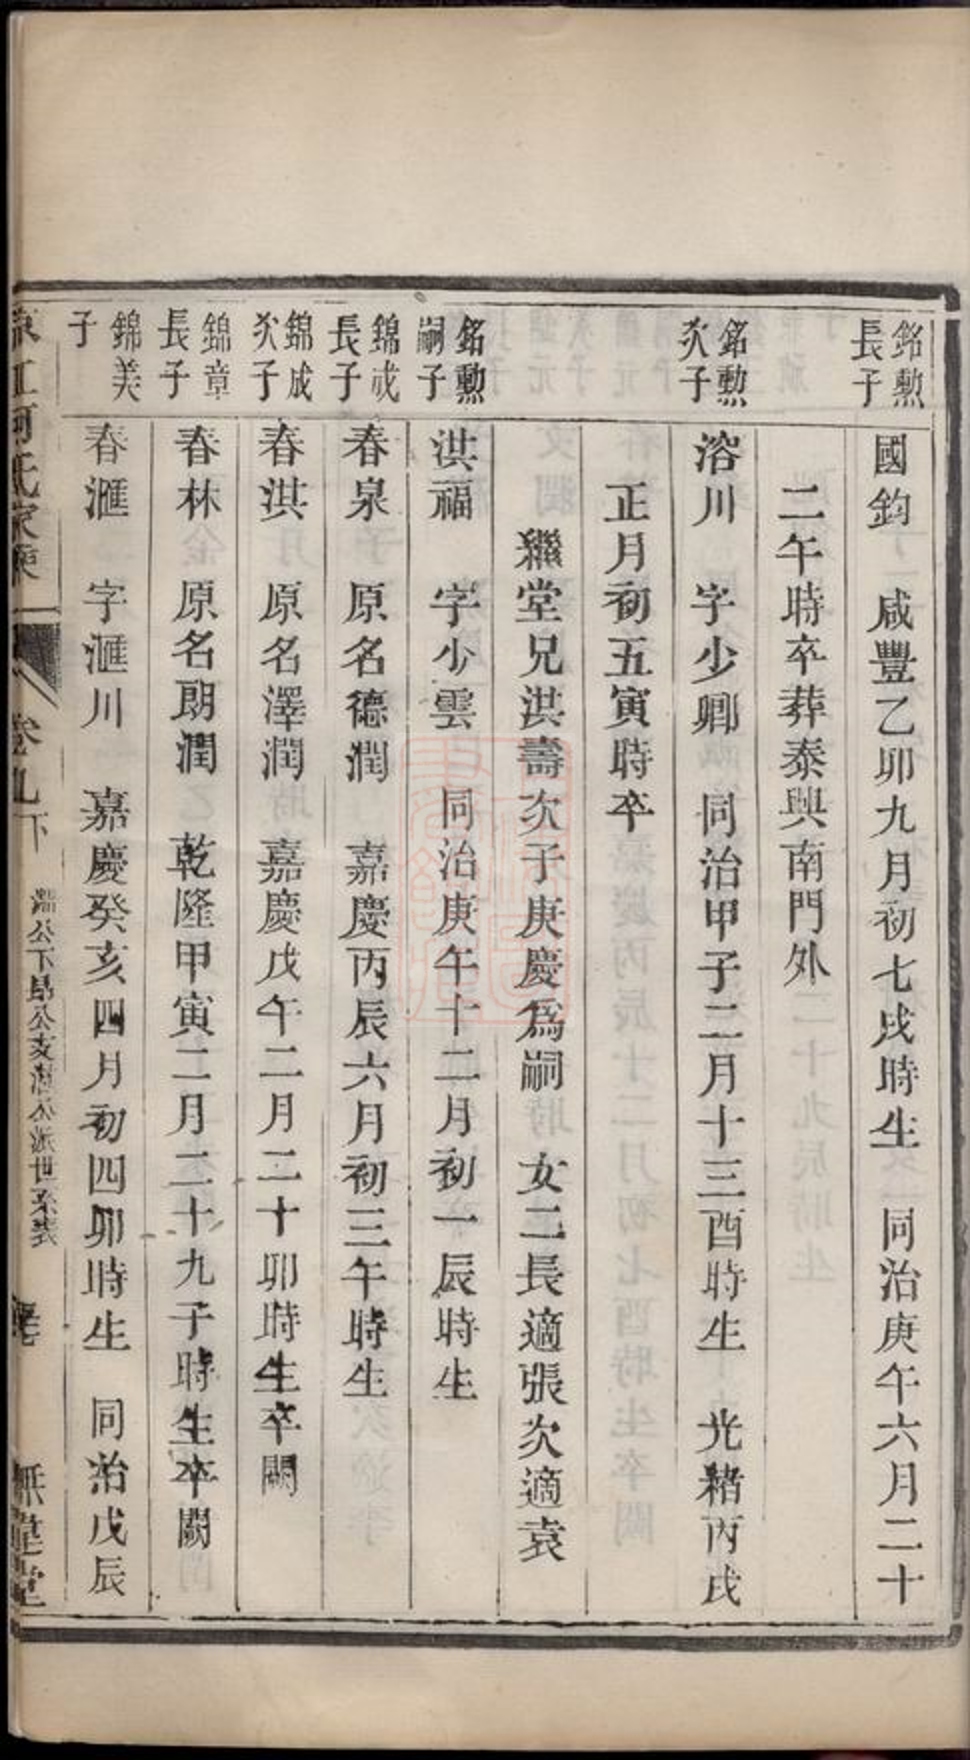 銘勲
長子
國鈞　咸豐乙卯九月初七戌時生　同治庚午六月二十
二午時卒葬泰興南門外
銘勲
次子
溶川　字少卿　同治甲子二月十三酉時生　光緒丙戌
正月初五寅時卒
繼堂兄洪壽次子庚慶爲嗣　女二長適張次適袁
銘勲
嗣子
洪福　字少雲　同治庚午十二月初一辰時生
錦成
長子
春泉　原名德潤　嘉慶丙辰六月初三午時生
錦成
次子
春洪　原名澤潤　嘉慶戊午二月二十卯時生卒闕
錦章
長子
春林　原名朗潤　乾隆甲寅二月二十九子時生卒闕
錦美
子
春滙　字滙川　嘉慶癸亥四月初四卯時生　同治戊辰
氏家乘
卷九下
公下昂公支派世系表
堂